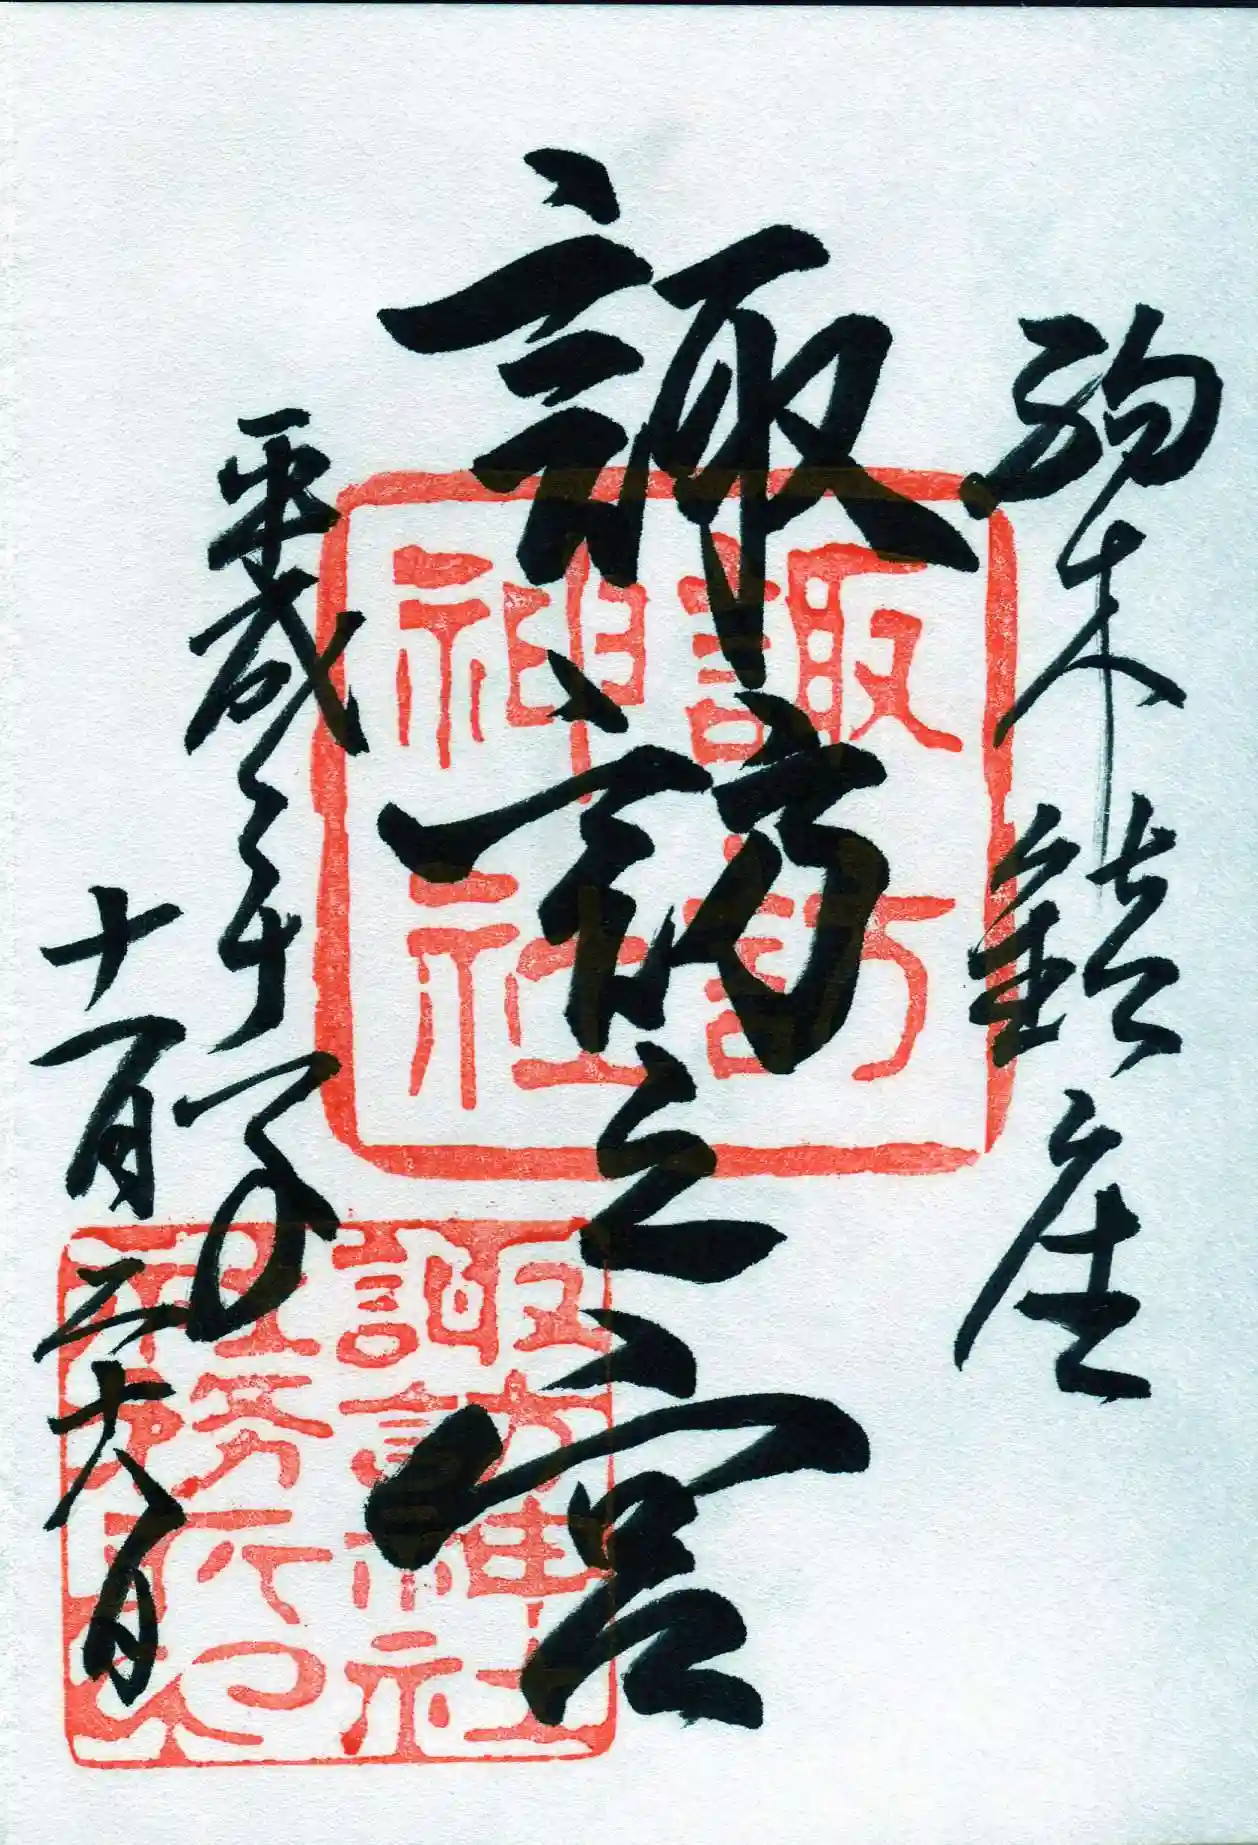 駒木鎮座
諏訪之宮
平成二十年子
十一月二十八日
諏訪
神社
諏訪神社
社務所印